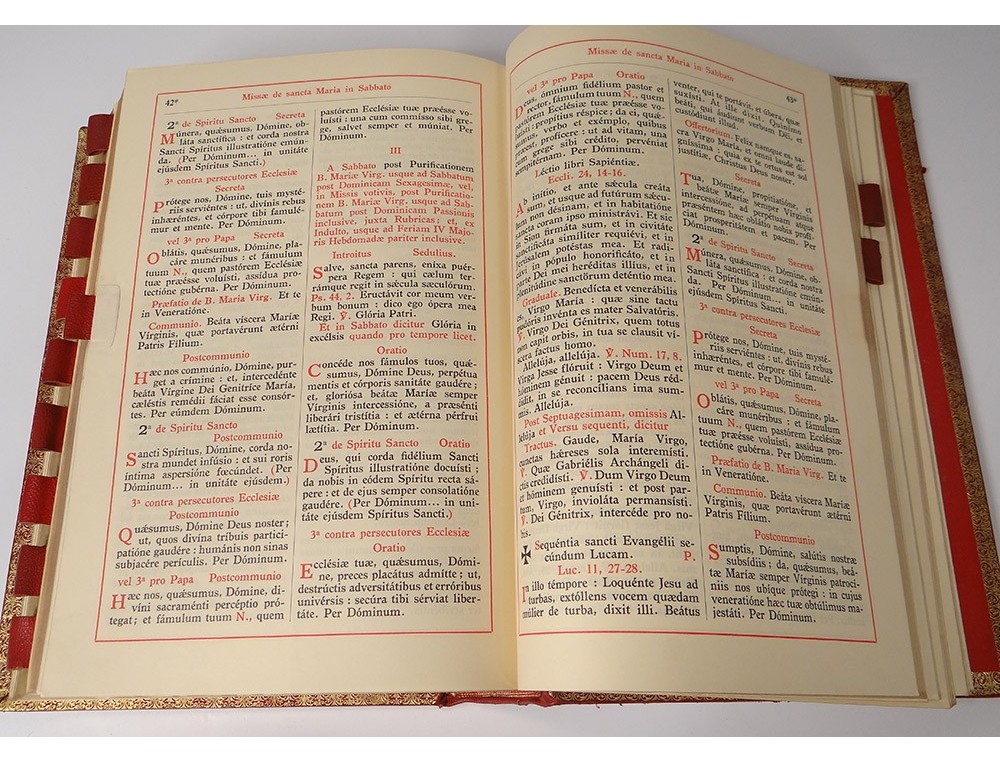 42*
Missæ de sancta Maria in Sabbato
2ª de Spiritu Sancto Secreta
Múnera, quǽsumus, Dómine, ob-
láta sanctífica : et corda nostra
Sancti Spíritus illustratióne emún-
da. (Per Dóminum... in unitáte
ejúsdem Spíritus Sancti.)
3ª contra persecutores Ecclesiæ
Secreta
Prótege nos, Dómine, tuis mysté-
riis serviéntes : ut, divínis rebus
inhæréntes, et córpore tibi famulé-
mur et mente. Per Dóminum.
vel 3ª pro Papa Secreta
Oblátis, quǽsumus, Dómine, pla-
cáre munéribus : et fámulum
tuum N., quem pastórem Ecclésiæ
tuæ præésse voluísti, assídua pro-
tectióne gubérna. Per Dóminum.
Præfatio de B. Maria Virg. Et te
in Veneratióne.
Communio. Beáta víscera Maríæ
Vírginis, quæ portavérunt ætérni
Patris Fílium.
Postcommunio
Hæc nos commúnio, Dómine, pur-
get a crímine : et, intercedénte
beáta Vírgine Dei Genitríce María,
cæléstis remédii fáciat esse consór-
tes. Per eúmdem Dóminum.
2ª de Spiritu Sancto
Postcommunio
Sancti Spíritus, Dómine, corda no-
stra mundet infúsio : et sui roris
íntima aspersióne fœcúndet. (Per
Dóminum... in unitáte ejúsdem.)
3ª contra persecutores Ecclesiæ
Postcommunio
Quǽsumus, Dómine Deus noster ;
ut, quos divína tríbuis partici-
patióne gaudére : humánis non sinas
subjacére perículis. Per Dóminum.
vel 3ª pro Papa Postcommunio
Hæc nos, quǽsumus, Dómine, di-
víni sacraménti percéptio pró-
tegat ; et fámulum tuum N., quem
pastórem Ecclésiæ tuæ præésse vo-
luísti : una cum commísso sibi gre-
ge, salvet semper et múniat. Per
Dóminum.
III
A Sabbato post Purificationem
B. Mariæ Virg. usque ad Sabbatum
post Dominicam Sexagesimæ, vel,
in Missis votivis, post Purificatio-
nem B. Mariæ Virg. usque ad Sab-
batum post Dominicam Passionis
inclusive, juxta Rubricas ; et, ex
Indulto, usque ad Feriam IV Majo-
ris Hebdomadæ pariter inclusive.
Introitus Sedulius.
Salve, sancta parens, eníxa puér-
pera Regem : qui cælum ter-
rámque regit in sǽcula sæculórum.
Ps. 44, 2. Eructávit cor meum ver-
bum bonum : dico ego ópera mea
Regi. ℣. Glória Patri.
Et in Sabbato dicitur Glória in
excélsis quando pro tempore licet.
Oratio
Concéde nos fámulos tuos, quǽ-
sumus, Dómine Deus, perpétua
mentis et córporis sanitáte gaudére ;
et, gloriósa beátæ Maríæ semper
Vírginis intercessióne, a præsénti
liberári tristítia : et ætérna pérfrui
lætítia. Per Dóminum.
2ª de Spiritu Sancto Oratio
Deus, qui corda fidélium Sancti
Spíritus illustratióne docuísti ;
da nobis in eódem Spíritu recta sá-
pere : et de ejus semper consolatióne
gaudére. (Per Dóminum... in uni-
táte ejúsdem Spíritus Sancti.)
3ª contra persecutores Ecclesiæ
Oratio
Ecclésiæ tuæ, quǽsumus, Dómi-
ne, preces placátus admítte ; ut,
destrúctis adversitátibus et erróribus
univérsis : secúra tibi sérviat liber-
táte. Per Dóminum.
Missæ de sancta Maria in Sabbato
43*
vel 3ª pro Papa Oratio
Deus, ómnium fidélium pastor et
rector, fámulum tuum N., quem
pastórem Ecclésiæ tuæ præésse vo-
luísti : propítius réspice ; da ei, quǽ-
sumus, verbo et exémplo, quibus
præest, profícere : ut ad vitam, una
cum grege sibi crédito, pervéniat
sempitérnam. Per Dóminum.
Léctio libri Sapiéntiæ.
Eccli. 24, 14-16.
Ab inítio, et ante sǽcula creáta
sum, et usque ad futúrum sǽcu-
lum non désinam, et in habitatióne
sancta coram ipso ministrávi. Et sic
in Sion firmáta sum, et in civitáte
sanctificáta simíliter requiévi, et in
Jerúsalem potéstas mea. Et radi-
cávi in pópulo honorificáto, et in
parte Dei mei heréditas illíus, et in
plenitúdine sanctórum deténtio mea
Graduale. Benedícta et venerábilis
es, Virgo María : quæ sine tactu
pudóris invénta es mater Salvatóris.
℣. Virgo Dei Génitrix, quem totus
non capit orbis, in tua se clausit ví-
scera factus homo.
Allelúja, allelúja. ℣. Num. 17, 8.
Virga Jesse flóruit : Virgo Deum et
hóminem génuit : pacem Deus réd-
didit, in se reconcílians ima sum-
mis. Allelúja.
Post Septuagesimam, omissis Al-
lelúja et Versu sequenti, dicitur
Tractus. Gaude, María Virgo,
cunctas hǽreses sola interemísti.
℣. Quæ Gabriélis Archángeli di-
ctis credidísti. ℣. Dum Virgo Deum
et hóminem genuísti : et post par-
tum, Virgo, invioláta permansísti.
℣. Dei Génitrix, intercéde pro no-
bis.
✠ Sequéntia sancti Evangélii se-
cúndum Lucam. P.
Luc. 11, 27-28.
In illo témpore : Loquénte Jesu ad
turbas, extóllens vocem quædam
múlier de turba, dixit illi. Beátus
venter, qui te portávit, et úbera, quæ
suxísti. At ille dixit. Quinímo
beáti, qui áudiunt verbum Dei, et
custódiunt illud.
Offertorium. Felix namque es, sa-
cra Virgo María, et omni laude di-
gníssima : quia ex te ortus est sol
justítiæ, Christus Deus noster.
Secreta
Tua, Dómine, propitiatióne, et
beátæ Maríæ semper Vírginis
intercessióne, ad perpétuam atque
præséntem hæc oblátio nobis profí-
ciat prosperitátem et pacem. Per
Dóminum.
2ª de Spiritu Sancto Secreta
Múnera, quǽsumus, Dómine, ob-
láta sanctífica : et corda nostra
Sancti Spíritus illustratióne emún-
da. Per Dóminum... in unitáte
ejúsdem Spíritus Sancti.
3ª contra persecutores Ecclesiæ
Secreta
Prótege nos, Dómine, tuis mysté-
riis serviéntes : ut, divínis rebus
inhæréntes, et córpore tibi famulé-
mur et mente. Per Dóminum.
vel 3ª pro Papa Secreta
Oblátis, quǽsumus, Dómine, pla-
cáre munéribus : et fámulum
tuum N., quem pastórem Ecclésiæ
tuæ præésse voluísti, assídua pro-
tectióne gubérna. Per Dóminum.
Præfatio de B. Maria Virg. Et te
in Veneratióne.
Communio. Beáta víscera Maríæ
Vírginis, quæ portavérunt ætérni
Patris Fílium.
Postcommunio
Sumptis, Dómine, salútis nostræ
subsídiis ; da, quǽsumus, beá-
tæ Maríæ semper Vírginis patrocí-
niis nos ubíque prótegi : in cujus
veneratióne hæc tuæ obtúlimus ma-
jestáti. Per Dóminum.